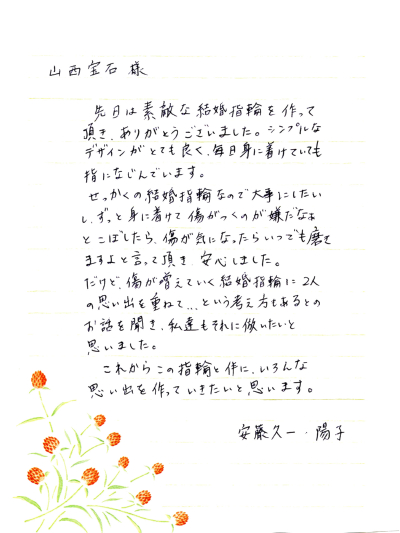 山西宝石 様
先日は素敵な結婚指輪を作って
頂き、ありがとうございました。シンプルな
デザインがとても良く、毎日身に着けていても
指になじんでいます。
せっかくの結婚指輪なので大事にしたい
し、ずっと身に着けて傷がつくのが嫌だなぁ
とこぼしたら、傷が気になったらいつでも磨き
ますよと言って頂き、安心しました。
だけど、傷が増えていく結婚指輪に2人
の思い出を重ねて...という考え方もあるとの
お話を聞き、私達もそれに倣いたいと
思いました。
これからこの指輪と伴に、いろんな
思い出を作っていきたいと思います。
安藤久一・陽子